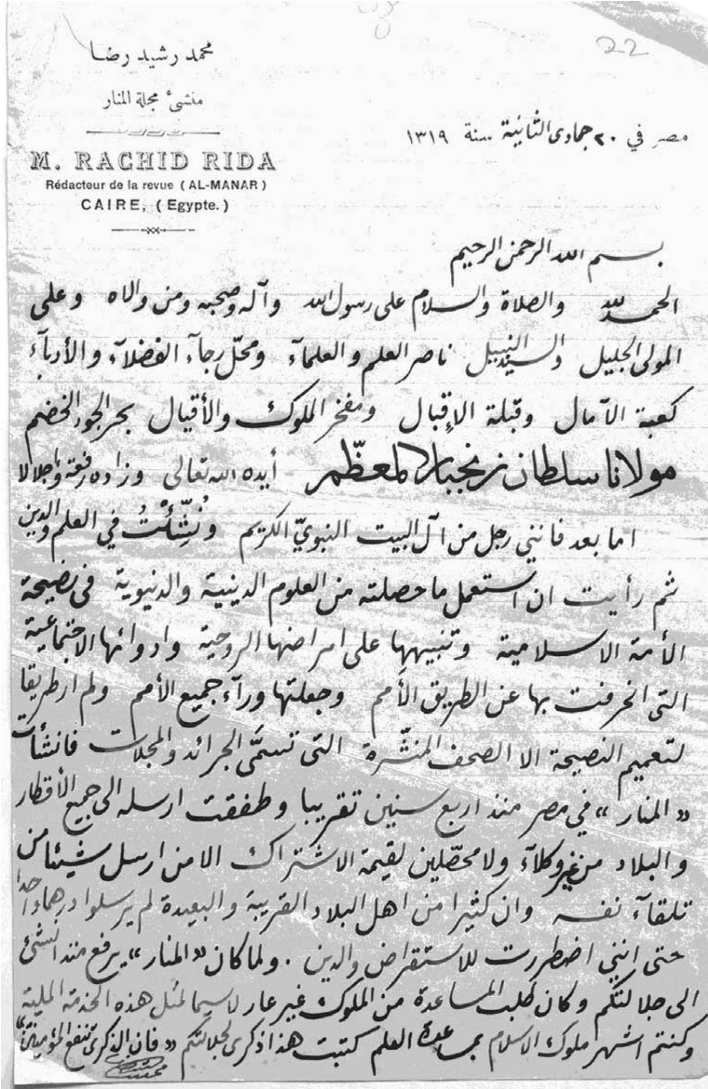 22
محمد رشيد رضا
منشئ مجلة المنار
M. RACHID RIDA
Rédacteur de la revue (AL-MANAR)
CAIRE, (Egypte.)
مصر في ٢٠ جمادى الثانية سنة ١٣١٩
بسم الله الرحمن الرحيم
الحمد لله والصلاة والسلام على رسول الله وآله وصحبه ومن والاه وعلى
المولى الجليل والسيد النبيل ناصر العلم والعلمآء ومحلّ رجآء الفضلآء والأدبآء
كعبة الآمال وقبلة الإقبال ومفخر الملوك والأقيال بحر الجود الخضم
مولانا سلطان زنجبار المعظّم أيده الله تعالى وزاده رفعة وإجلالا
اما بعد فانني رجل من آل البيت النبويّ الكريم ونُشِّئْتُ في العلم والدين
ثم رأيت ان استعمل ما حصلته من العلوم الدينية والدنيوية في نصيحة
الأمة الاسلامية وتنبيهها على امراضها الروحية وادوائها الاجتماعية
التى انحرفت بها عن الطريق الأمم وجعلتها ورآء جميع الأمم ولم ار طريقا
لتعميم النصيحة الا الصحف المنشّرة التى تسمَّى الجرائد والمجلات فانشأت
«المنار» في مصر منذ اربع سنين تقريبا وطفقت ارسله الى جميع الأقطار
والبلاد من غير وكلآء ولا محصّلين لقيمة الاشتراك الا من ارسل شيئا من
تلقآء نفسه وان كثيرا من اهل البلاد القريبة والبعيدة لم يرسلوا درهما واحدا
حتى انني اضطررت للاستقراض والدين . ولما كان «المنار» يرفع منذ انشئ
الى جلالتكم وكان طلب المساعدة من الملوك غير عار لاسيما لمثل هذه الخدمة الملية
وكنتم اشهر ملوك الاسلام بمساعدة العلم كتبت هذا ذكرى لجلالتكم «فان الذكرى تنفع المؤمنين»